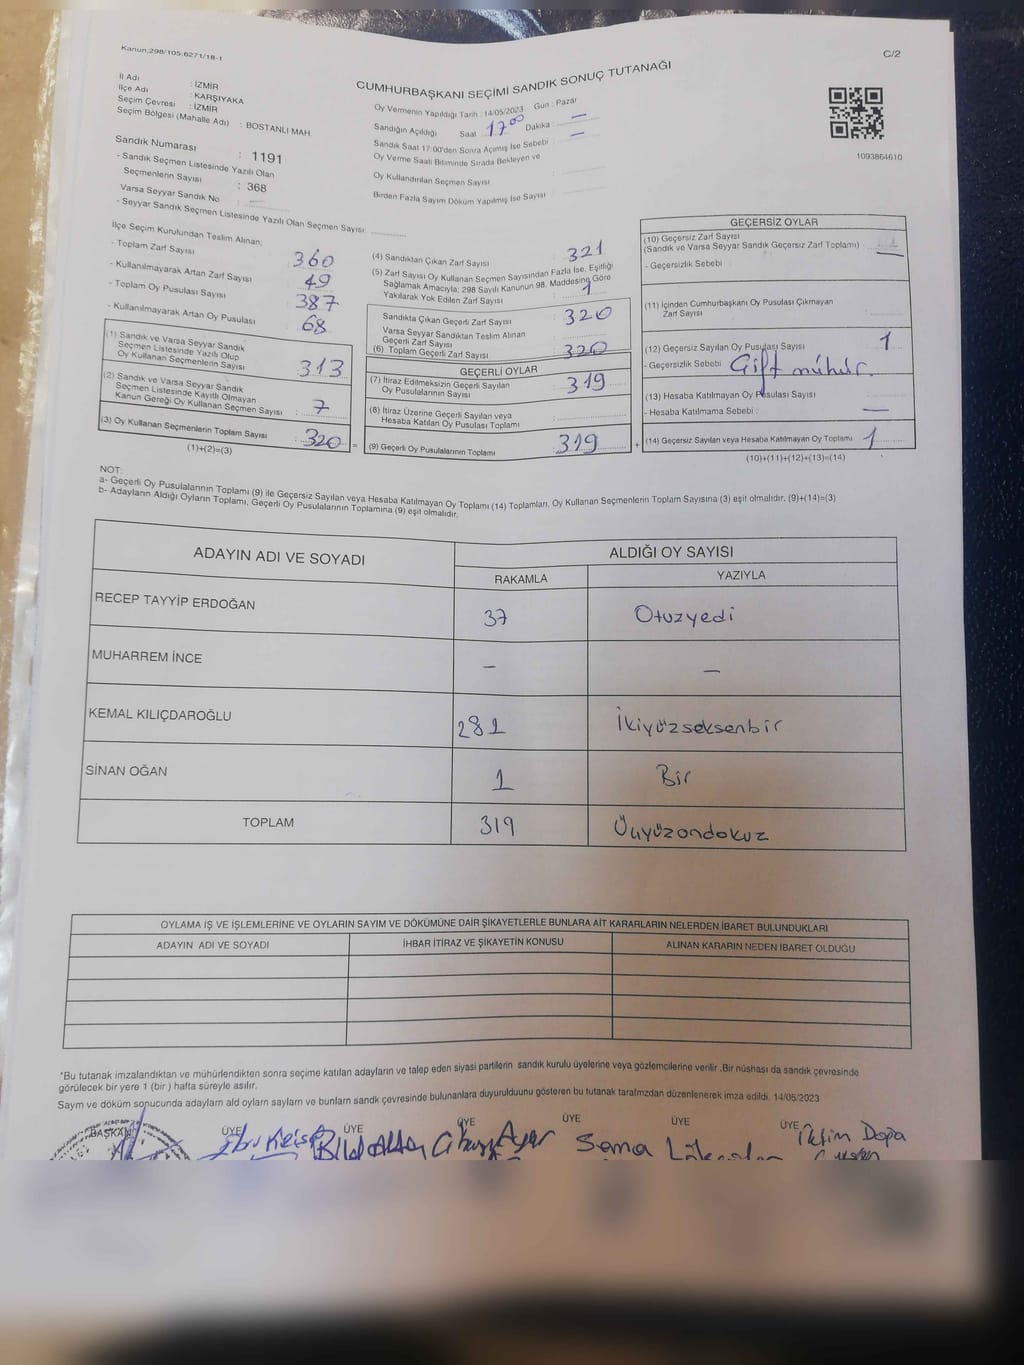 Kanun:298/105:6271/18-1
C/2
CUMHURBAŞKANI SEÇİMİ SANDIK SONUÇ TUTANAĞI
İl Adı : İZMİR
İlçe Adı : KARŞIYAKA
Seçim Çevresi : İZMİR
Seçim Bölgesi (Mahalle Adı) : BOSTANLI MAH.
Oy Vermenin Yapıldığı Tarih : 14/05/2023 Gün : Pazar
Sandığın Açıldığı Saat 17⁰⁰ Dakika : —
Sandık Saat 17:00'den Sonra Açılmış İse Sebebi : —
Oy Verme Saati Bitiminde Sırada Bekleyen ve
Oy Kullandırılan Seçmen Sayısı
Birden Fazla Sayım Döküm Yapılmış İse Sayısı
1093864610
Sandık Numarası : 1191
- Sandık Seçmen Listesinde Yazılı Olan
Seçmenlerin Sayısı : 368
Varsa Seyyar Sandık No : —
- Seyyar Sandık Seçmen Listesinde Yazılı Olan Seçmen Sayısı:
İlçe Seçim Kurulundan Teslim Alınan:
- Toplam Zarf Sayısı : 360
- Kullanılmayarak Artan Zarf Sayısı : 49
- Toplam Oy Pusulası Sayısı : 387
- Kullanılmayarak Artan Oy Pusulası : 68
(1) Sandık ve Varsa Seyyar Sandık
Seçmen Listesinde Yazılı Olup
Oy Kullanan Seçmenlerin Sayısı : 313
(2) Sandık ve Varsa Seyyar Sandık
Seçmen Listesinde Kayıtlı Olmayan
Kanun Gereği Oy Kullanan Seçmen Sayısı : 7
(3) Oy Kullanan Seçmenlerin Toplam Sayısı : 320 =
(1)+(2)=(3)
(4) Sandıktan Çıkan Zarf Sayısı : 321
(5) Zarf Sayısı Oy Kullanan Seçmen Sayısından Fazla İse, Eşitliği
Sağlamak Amacıyla; 298 Sayılı Kanunun 98. Maddesine Göre
Yakılarak Yok Edilen Zarf Sayısı : 1
Sandıkta Çıkan Geçerli Zarf Sayısı : 320
Varsa Seyyar Sandıktan Teslim Alınan
Geçerli Zarf Sayısı
(6) Toplam Geçerli Zarf Sayısı : 320
GEÇERLİ OYLAR
(7) İtiraz Edilmeksizin Geçerli Sayılan
Oy Pusulasının Sayısı : 319
(8) İtiraz Üzerine Geçerli Sayılan veya
Hesaba Katılan Oy Pusulası Toplamı
(9) Geçerli Oy Pusulalarının Toplamı : 319 +
GEÇERSİZ OYLAR
(10) Geçersiz Zarf Sayısı
(Sandık ve Varsa Seyyar Sandık Geçersiz Zarf Toplamı) :
- Geçersizlik Sebebi :
(11) İçinden Cumhurbaşkanı Oy Pusulası Çıkmayan
Zarf Sayısı
(12) Geçersiz Sayılan Oy Pusulası Sayısı : 1
- Geçersizlik Sebebi : Çift mühür.
(13) Hesaba Katılmayan Oy Pusulası Sayısı
- Hesaba Katılmama Sebebi : —
(14) Geçersiz Sayılan veya Hesaba Katılmayan Oy Toplamı : 1
(10)+(11)+(12)+(13)=(14)
NOT:
a- Geçerli Oy Pusulalarının Toplamı (9) ile Geçersiz Sayılan veya Hesaba Katılmayan Oy Toplamı (14) Toplamları, Oy Kullanan Seçmenlerin Toplam Sayısına (3) eşit olmalıdır. (9)+(14)=(3)
b- Adayların Aldığı Oyların Toplamı, Geçerli Oy Pusulalarının Toplamına (9) eşit olmalıdır.
ADAYIN ADI VE SOYADI ALDIĞI OY SAYISI
RAKAMLA YAZIYLA
RECEP TAYYİP ERDOĞAN 37 Otuzyedi
MUHARREM İNCE — —
KEMAL KILIÇDAROĞLU 281 İkiyüzseksenbir
SİNAN OĞAN 1 Bir
TOPLAM 319 Üçyüzondokuz
OYLAMA İŞ VE İŞLEMLERİNE VE OYLARIN SAYIM VE DÖKÜMÜNE DAİR ŞİKAYETLERLE BUNLARA AİT KARARLARIN NELERDEN İBARET BULUNDUKLARI
ADAYIN ADI VE SOYADI İHBAR İTİRAZ VE ŞİKAYETİN KONUSU ALINAN KARARIN NEDEN İBARET OLDUĞU
*Bu tutanak imzalandıktan ve mühürlendikten sonra seçime katılan adayların ve talep eden siyasi partilerin sandık kurulu üyelerine veya gözlemcilerine verilir. Bir nüshası da sandık çevresinde
görülecek bir yere 1 (bir ) hafta süreyle asılır.
Saym ve döküm sonucunda adayların ald oyların sayları ve bunların sandk çevresinde bulunanlara duyurulduunu gösteren bu tutanak tarafmzdan düzenlenerek imza edildi. 14/05/2023
BAŞKAN ÜYE ÜYE ÜYE ÜYE ÜYE ÜYE
Sema